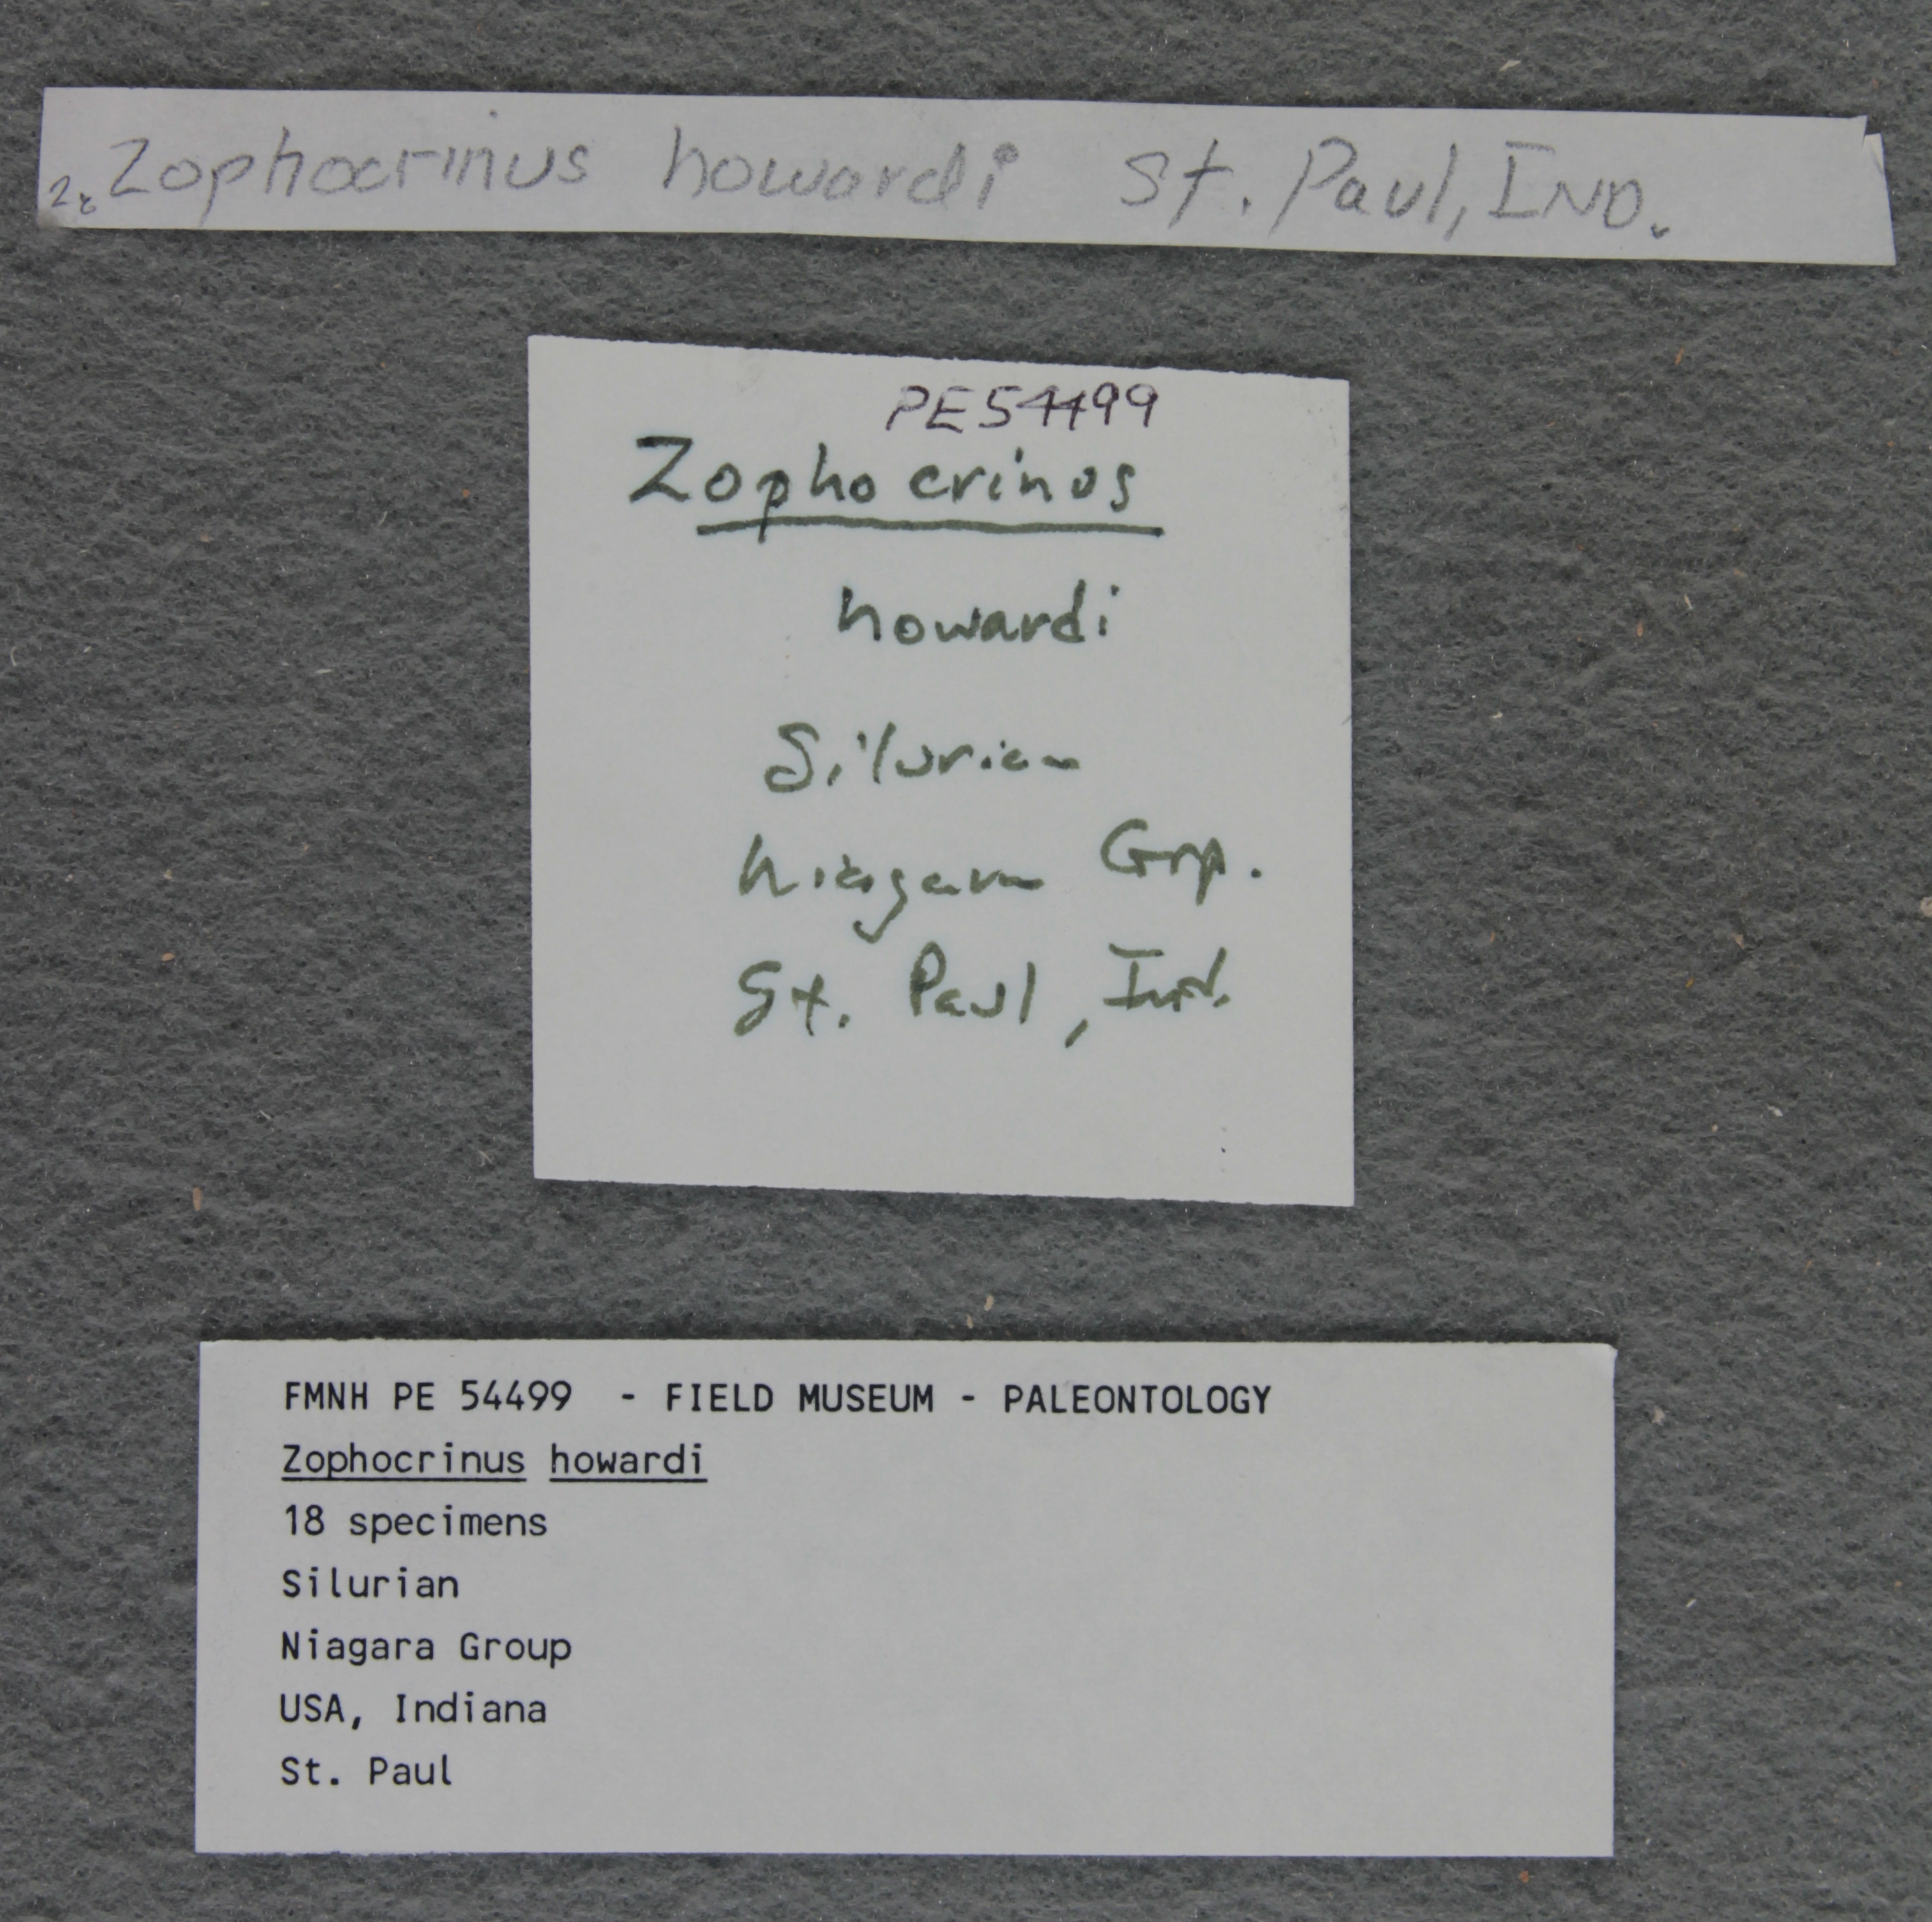 Zophocrinus howardi St. Paul, IND.
PE54499
Zophocrinus
howardi
Silurian
Niagara Grp.
St. Paul, Ind.
FMNH PE 54499 - FIELD MUSEUM - PALEONTOLOGY
Zophocrinus howardi
18 specimens
Silurian
Niagara Group
USA, Indiana
St. Paul